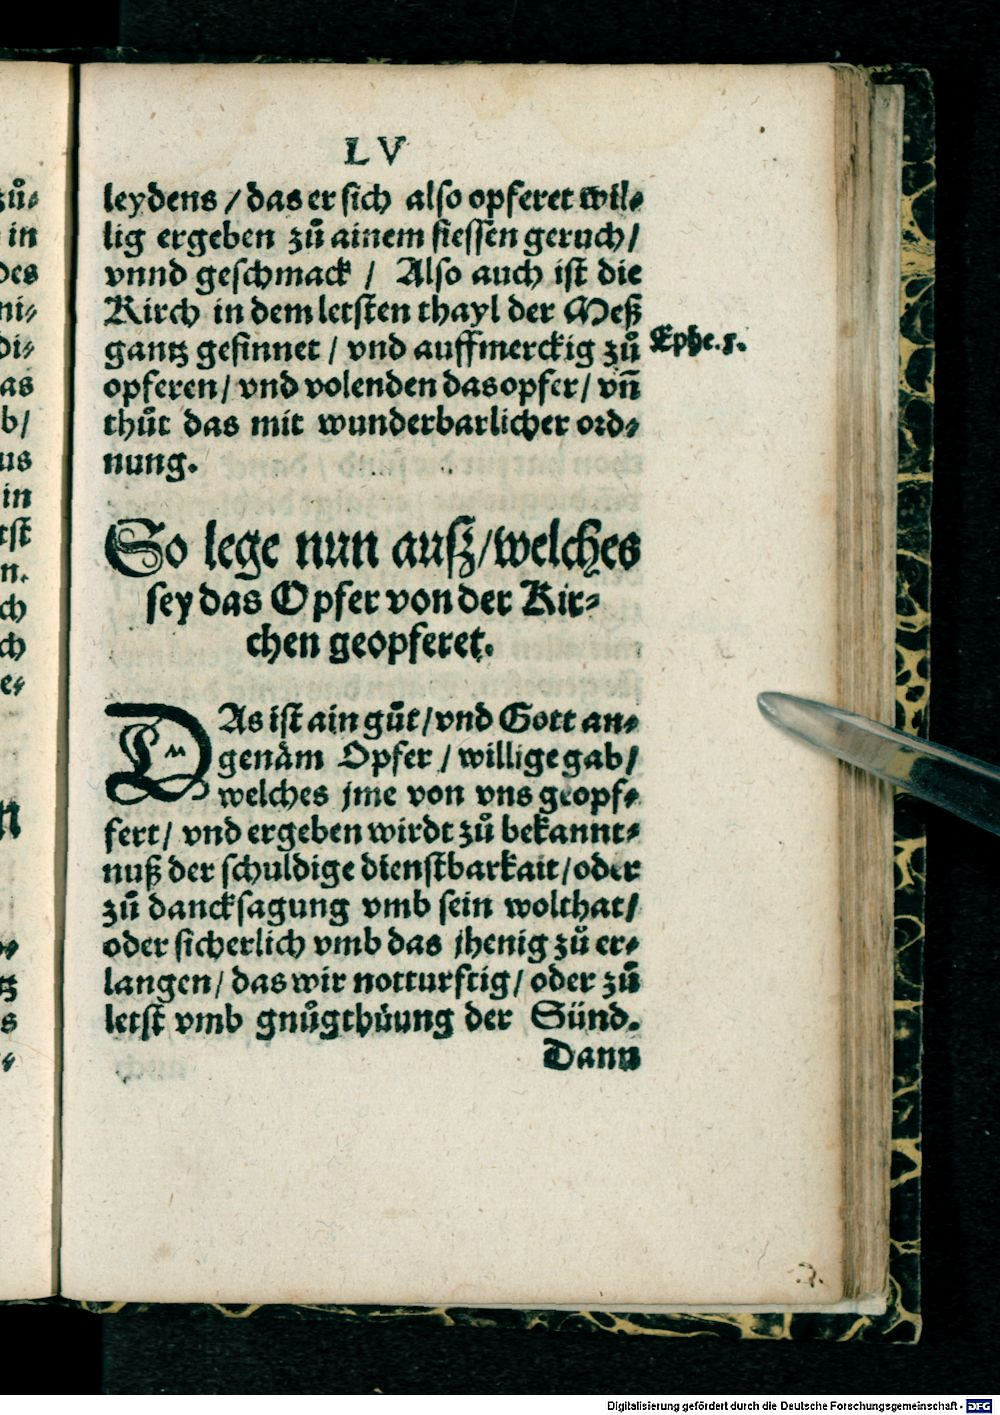 LV
leydens / das er sich also opferet wil⸗
lig ergeben zů ainem siessen geruch /
vnnd geschmack / Also auch ist die
Kirch in dem letsten thayl der Meß
gantz gesinnet / vnd auffmerckig zů
Ephe. 5.
opferen / vnd volenden das opfer / vn̄
thůt das mit wunderbarlicher ord⸗
nung.
So lege nun außz / welches
sey das Opfer von der Kir⸗
chen geopferet.
DAs ist ain gůt / vnd Gott an⸗
genäm Opfer / willige gab /
welches jme von vns geopf⸗
fert / vnd ergeben wirdt zů bekannt⸗
nuß der schuldige dienstbarkait / oder
zů dancksagung vmb sein wolthat /
oder sicherlich vmb das jhenig zů er⸗
langen / das wir notturftig / oder zů
letst vmb gnůgthůung der Sünd.
Dann
Digitalisierung gefördert durch die Deutsche Forschungsgemeinschaft - DFG